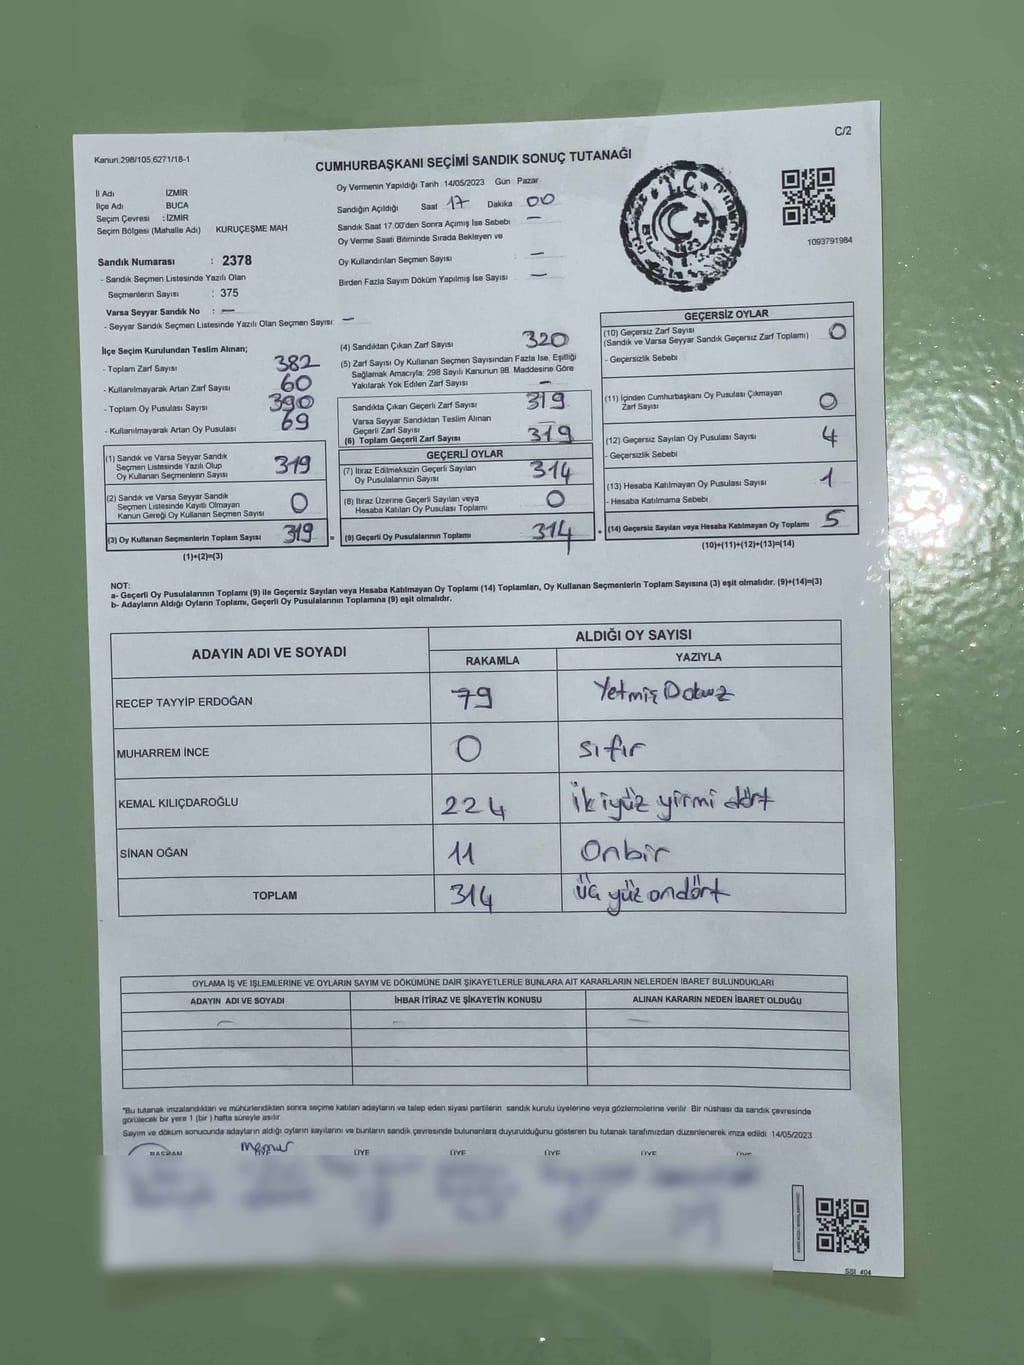 C/2
Kanun:298/105,6271/18-1
CUMHURBAŞKANI SEÇİMİ SANDIK SONUÇ TUTANAĞI
İl Adı İZMİR
İlçe Adı BUCA
Seçim Çevresi :İZMİR
Seçim Bölgesi (Mahalle Adı) KURUÇEŞME MAH
Sandık Numarası : 2378
- Sandık Seçmen Listesinde Yazılı Olan
Seçmenlerin Sayısı : 375
Varsa Seyyar Sandık No : —
- Seyyar Sandık Seçmen Listesinde Yazılı Olan Seçmen Sayısı: —
Oy Vermenin Yapıldığı Tarih 14/05/2023 Gün Pazar
Sandığın Açıldığı Saat 17 Dakika 00
Sandık Saat 17.00'den Sonra Açımış İse Sebebi —
Oy Verme Saati Bitiminde Sırada Bekleyen ve
Oy Kullandırılan Seçmen Sayısı —
Birden Fazla Sayım Döküm Yapılmış İse Sayısı —
T.C.
1093791984
İlçe Seçim Kurulundan Teslim Alınan;
- Toplam Zarf Sayısı 382
- Kullanılmayarak Artan Zarf Sayısı 60
- Toplam Oy Pusulası Sayısı 390
- Kullanılmayarak Artan Oy Pusulası 69
(1) Sandık ve Varsa Seyyar Sandık
Seçmen Listesinde Yazılı Olup
Oy Kullanan Seçmenlerin Sayısı 319
(2) Sandık ve Varsa Seyyar Sandık
Seçmen Listesinde Kayıtlı Olmayan
Kanun Gereği Oy Kullanan Seçmen Sayısı 0
(3) Oy Kullanan Seçmenlerin Toplam Sayısı 319 =
(1)+(2)=(3)
(4) Sandıktan Çıkan Zarf Sayısı 320
(5) Zarf Sayısı Oy Kullanan Seçmen Sayısından Fazla İse, Eşitliği
Sağlamak Amacıyla; 298 Sayılı Kanunun 98. Maddesine Göre
Yakılarak Yok Edilen Zarf Sayısı —
Sandıkta Çıkan Geçerli Zarf Sayısı 319
Varsa Seyyar Sandıktan Teslim Alınan
Geçerli Zarf Sayısı —
(6) Toplam Geçerli Zarf Sayısı 319
GEÇERLİ OYLAR
(7) İtiraz Edilmeksizin Geçerli Sayılan
Oy Pusulalarının Sayısı 314
(8) İtiraz Üzerine Geçerli Sayılan veya
Hesaba Katılan Oy Pusulası Toplamı 0
(9) Geçerli Oy Pusulalarının Toplamı 314 +
GEÇERSİZ OYLAR
(10) Geçersiz Zarf Sayısı 0
(Sandık ve Varsa Seyyar Sandık Geçersiz Zarf Toplamı)
- Geçersizlik Sebebi
(11) İçinden Cumhurbaşkanı Oy Pusulası Çıkmayan
Zarf Sayısı 0
(12) Geçersiz Sayılan Oy Pusulası Sayısı 4
- Geçersizlik Sebebi
(13) Hesaba Katılmayan Oy Pusulası Sayısı 1
- Hesaba Katılmama Sebebi
(14) Geçersiz Sayılan veya Hesaba Katılmayan Oy Toplamı 5
(10)+(11)+(12)+(13)=(14)
NOT:
a- Geçerli Oy Pusulalarının Toplamı (9) ile Geçersiz Sayılan veya Hesaba Katılmayan Oy Toplamı (14) Toplamları, Oy Kullanan Seçmenlerin Toplam Sayısına (3) eşit olmalıdır. (9)+(14)=(3)
b- Adayların Aldığı Oyların Toplamı, Geçerli Oy Pusulalarının Toplamına (9) eşit olmalıdır.
ADAYIN ADI VE SOYADI
ALDIĞI OY SAYISI
RAKAMLA YAZIYLA
RECEP TAYYİP ERDOĞAN 79 Yetmiş Dokuz
MUHARREM İNCE 0 sıfır
KEMAL KILIÇDAROĞLU 224 İkiyüz yirmi dört
SİNAN OĞAN 11 Onbir
TOPLAM 314 üç yüz ondört
OYLAMA İŞ VE İŞLEMLERİNE VE OYLARIN SAYIM VE DÖKÜMÜNE DAİR ŞİKAYETLERLE BUNLARA AİT KARARLARIN NELERDEN İBARET BULUNDUKLARI
ADAYIN ADI VE SOYADI İHBAR İTİRAZ VE ŞİKAYETİN KONUSU ALINAN KARARIN NEDEN İBARET OLDUĞU
— — —
*Bu tutanak imzalandıktan ve mühürlendikten sonra seçime katılan adayların ve talep eden siyasi partilerin sandık kurulu üyelerine veya gözlemcilerine verilir. Bir nüshası da sandık çevresinde
görülecek bir yere 1 (bir ) hafta süreyle asılır.
Sayım ve döküm sonucunda adayların aldığı oyların sayılarını ve bunların sandık çevresinde bulunanlara duyurulduğunu gösteren bu tutanak tarafımızdan düzenlenerek imza edildi. 14/05/2023
BAŞKAN Memur ÜYE ÜYE ÜYE ÜYE ÜYE
SSI_404